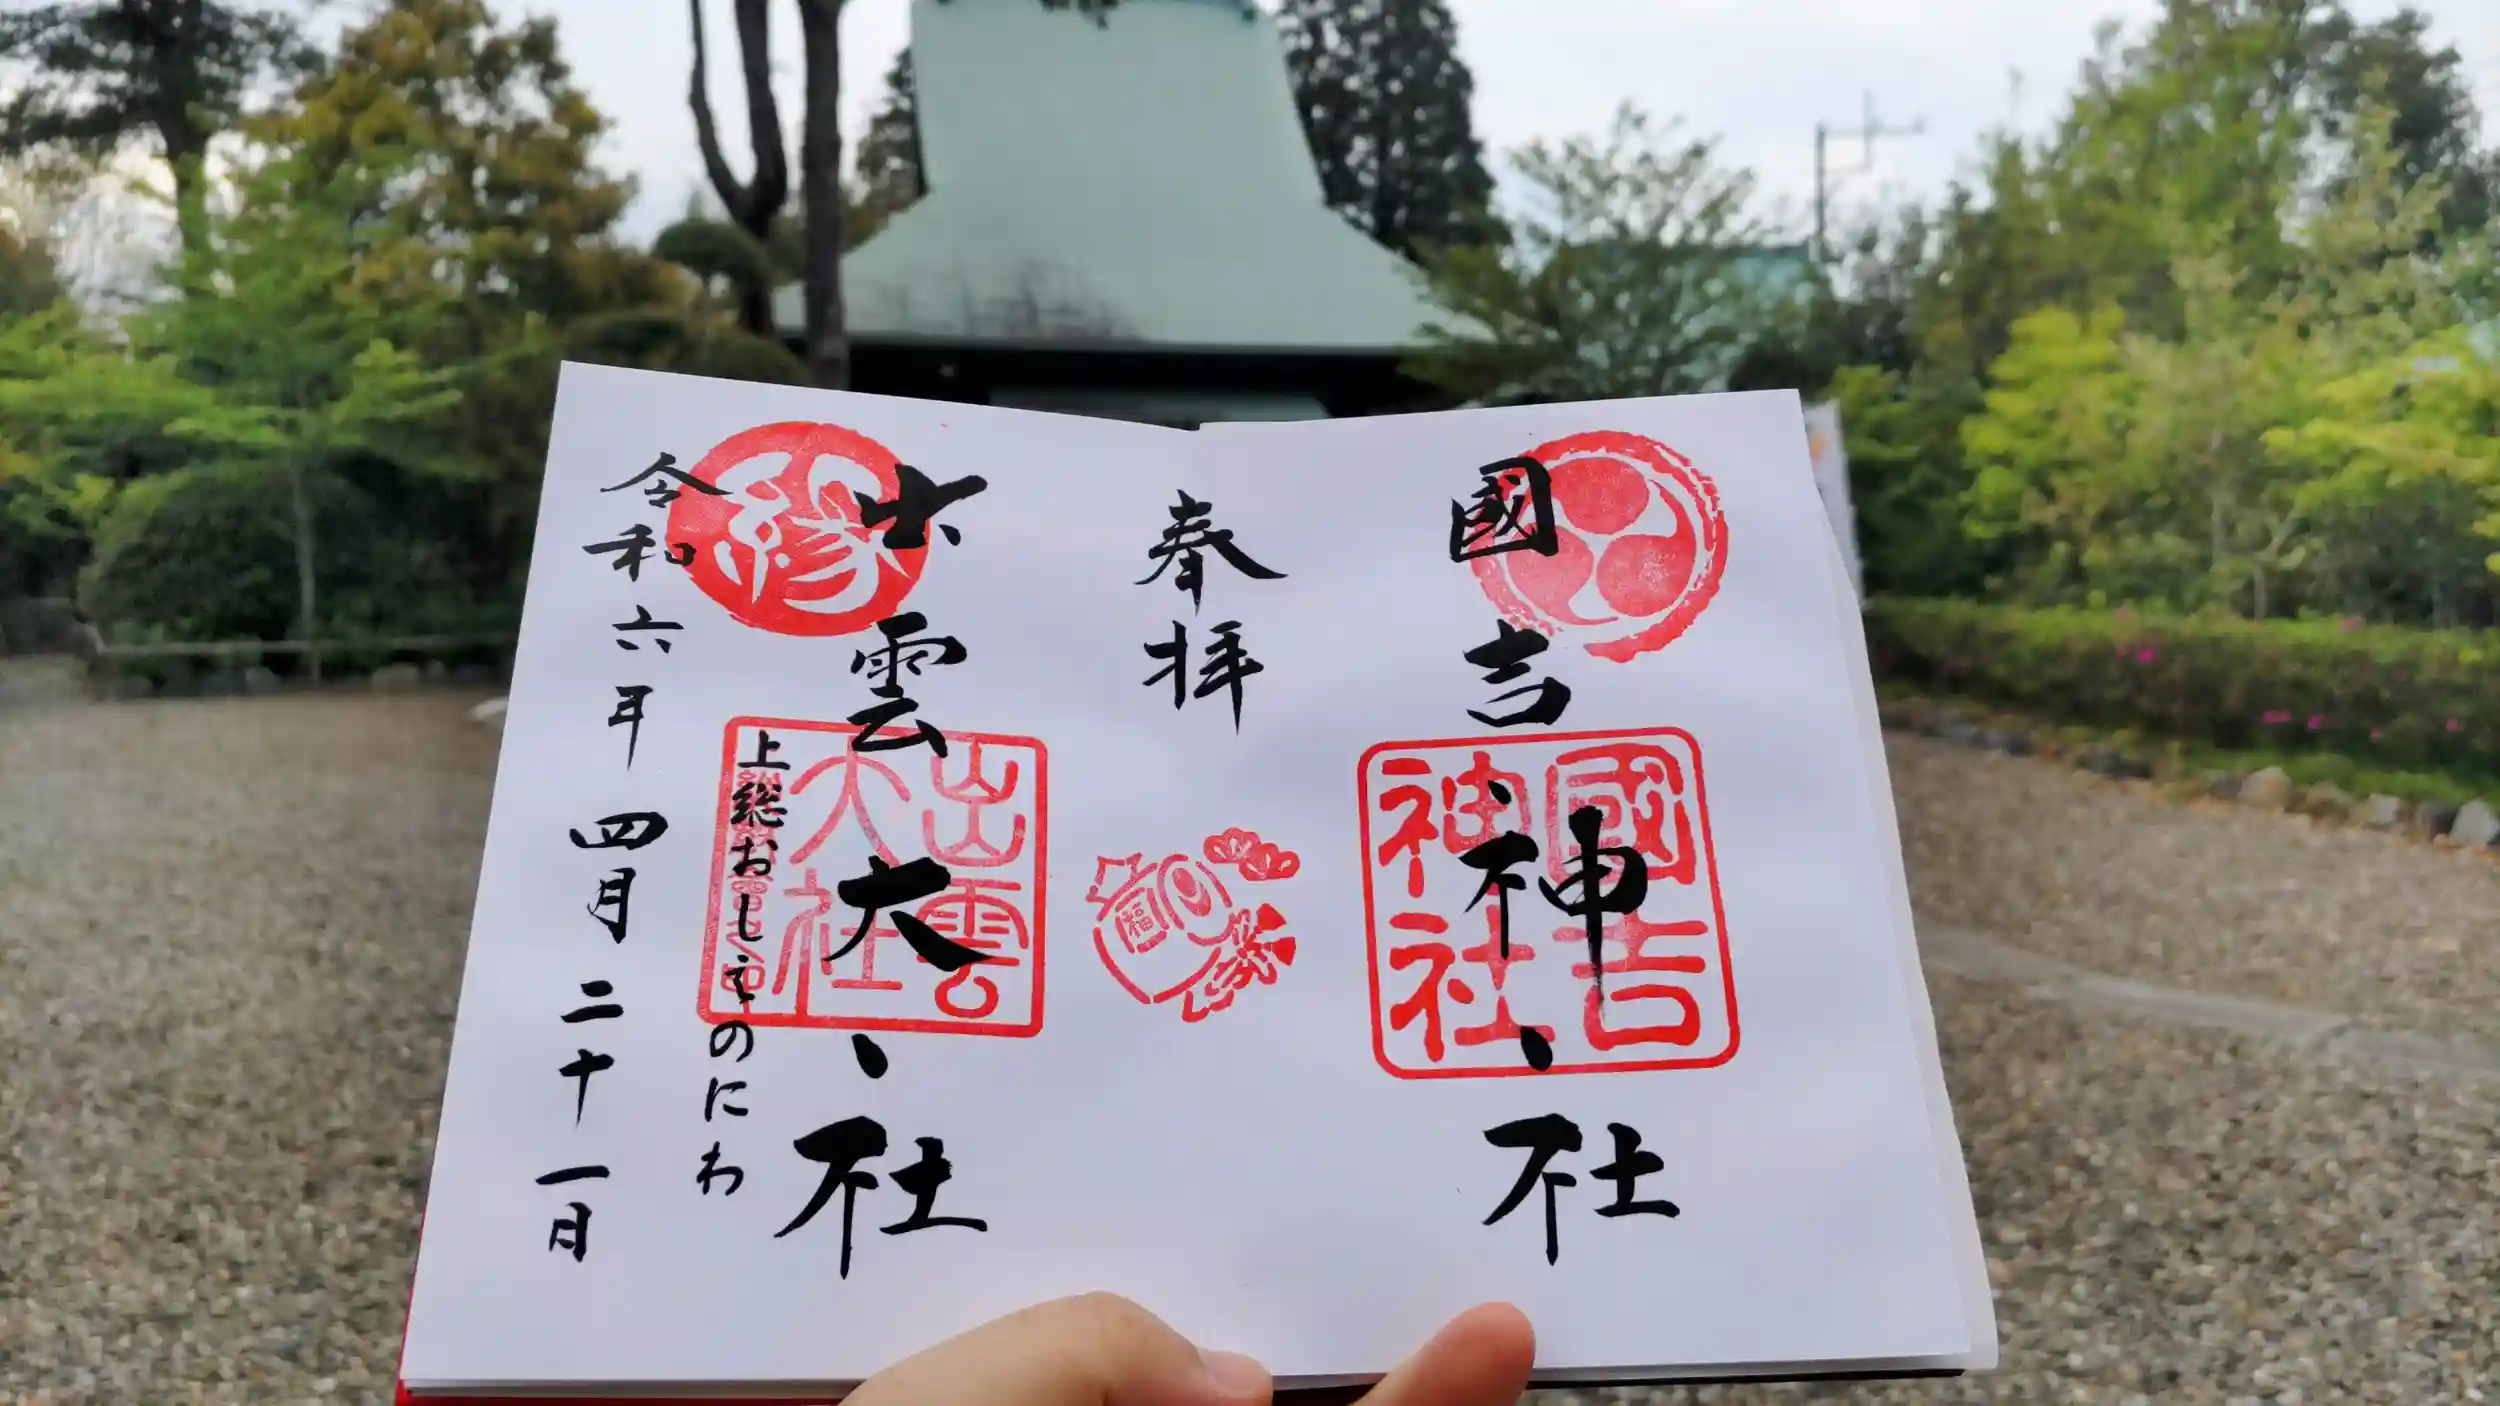 國吉神社
國吉
神社
奉拝
福
出雲大社
出雲
大社
縁
上総おしえのにわ
令和六年四月二十一日